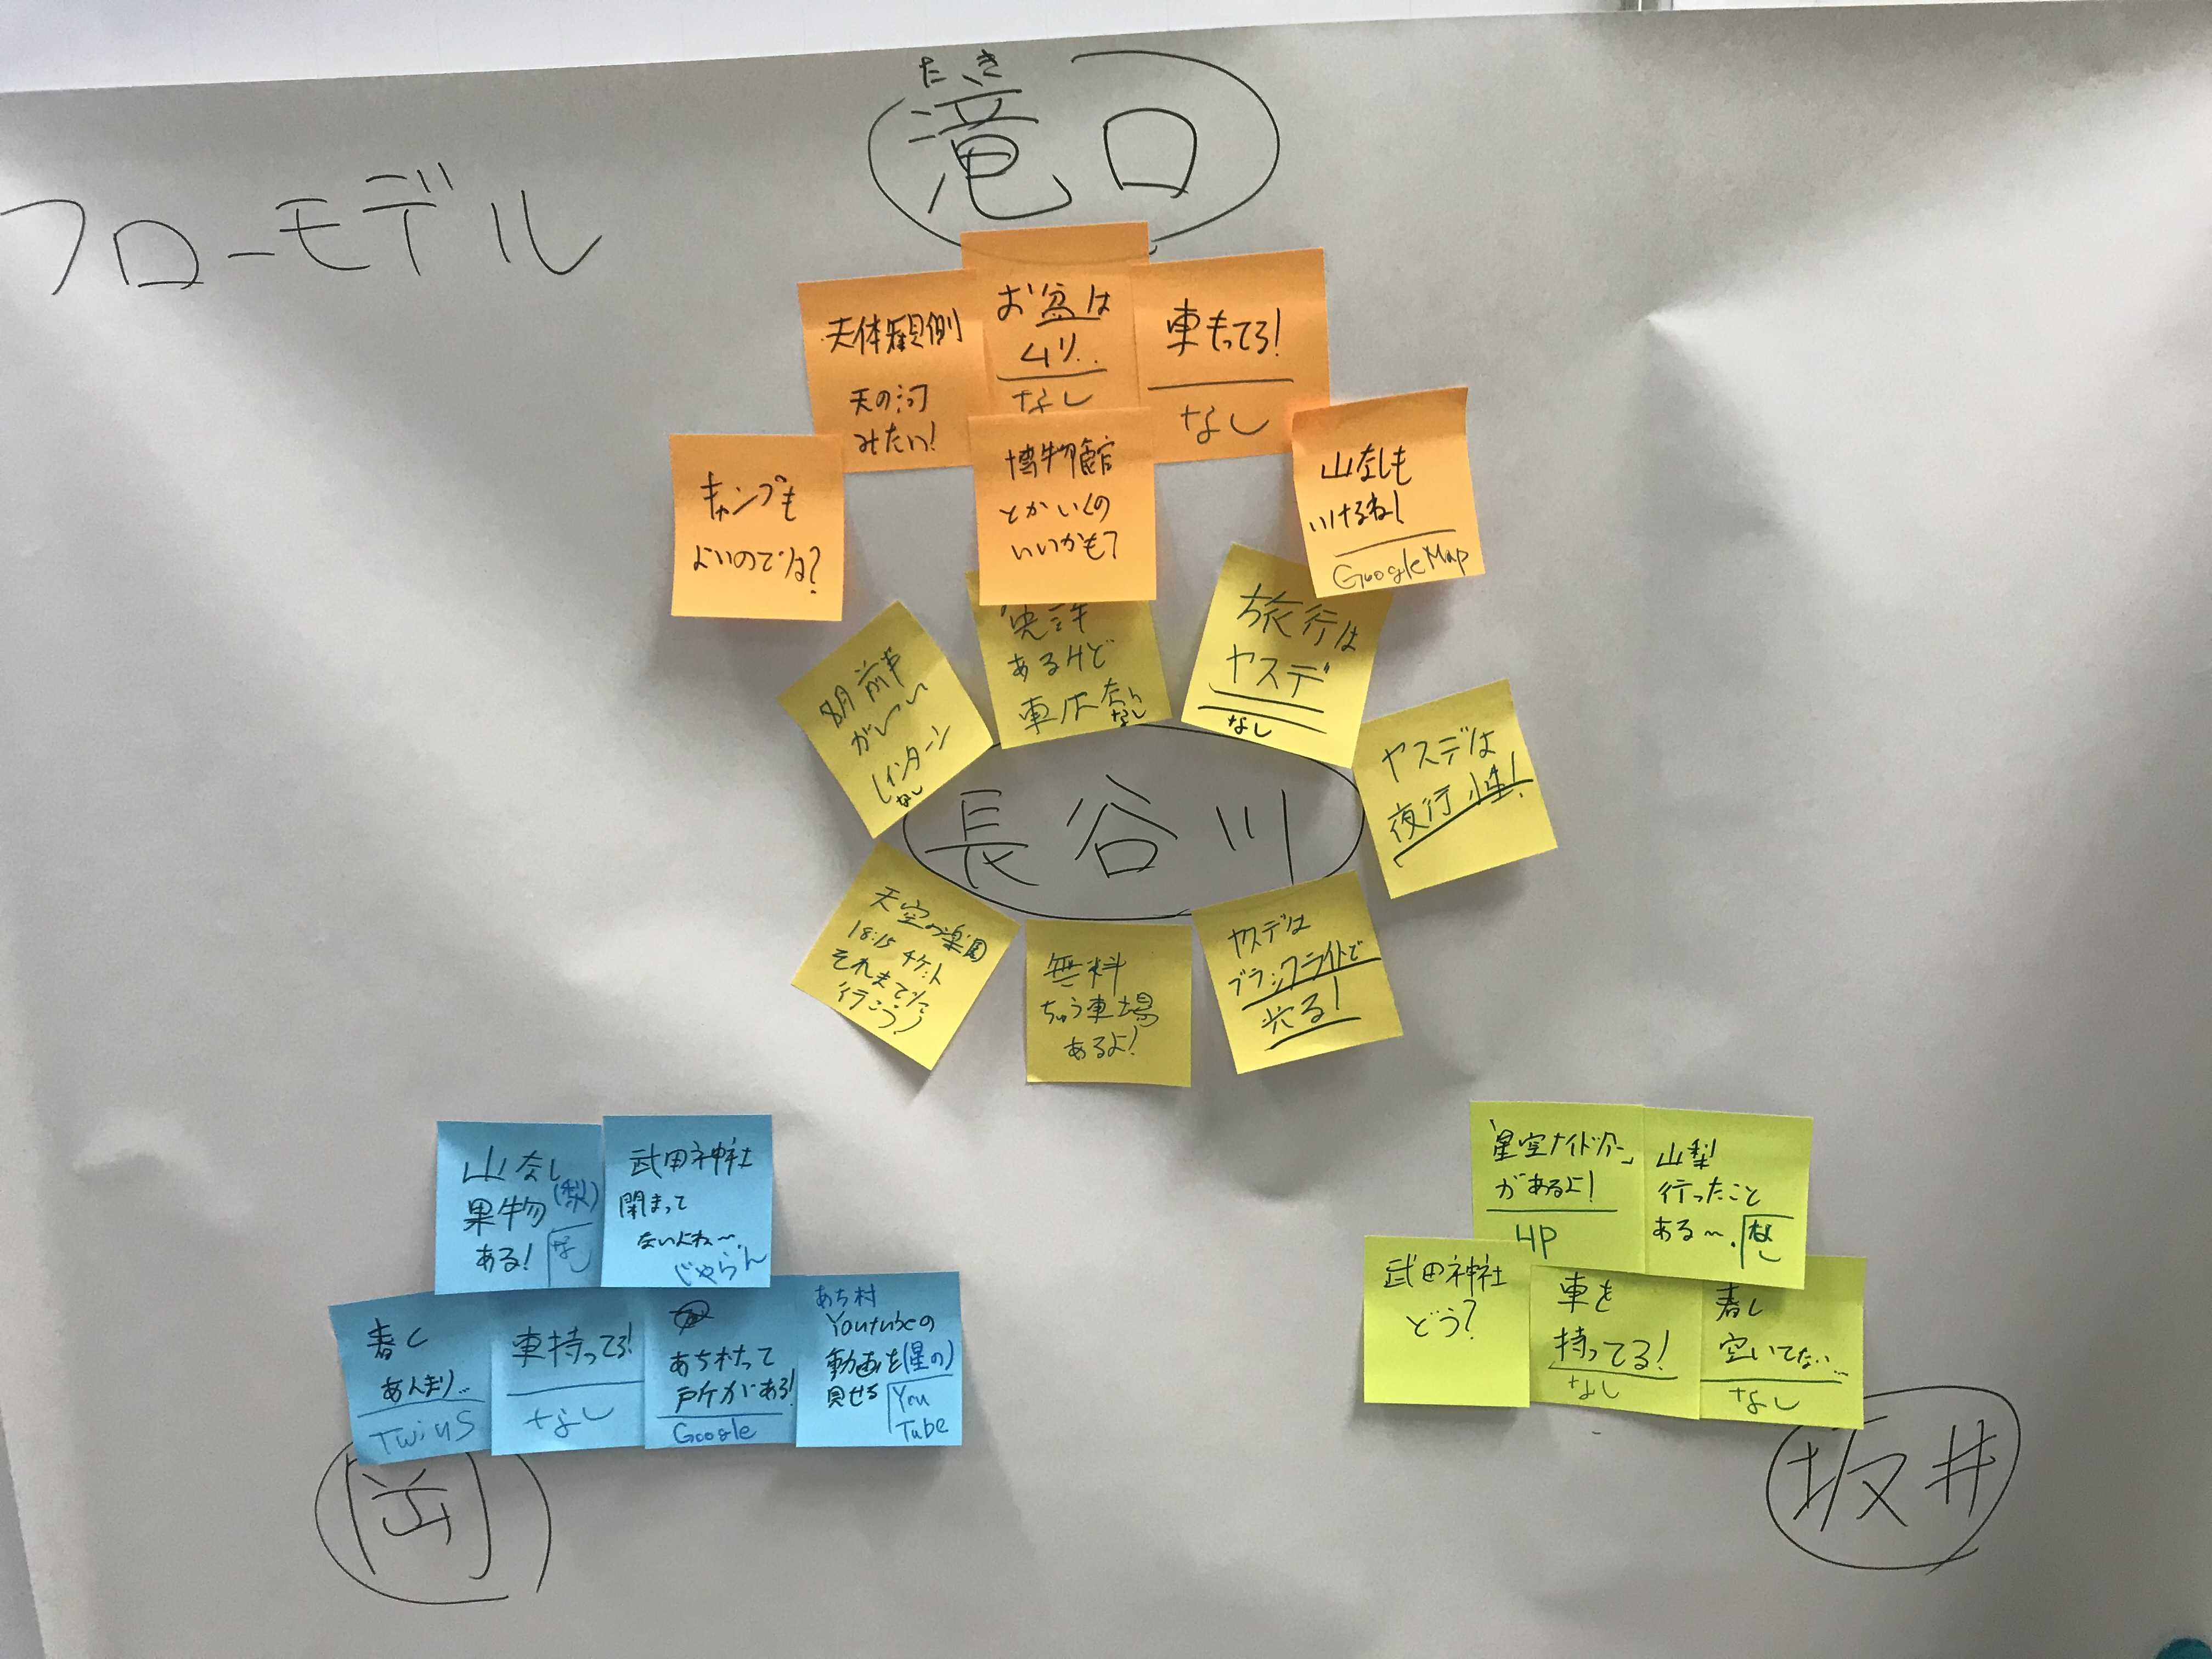 フローモデル
たき
滝口
天体観側
天の河
みたい!
お盆は
ムリ..
なし
車もってる!
なし
キャンプも
よいのでは?
博物館
とかいくの
いいかも?
山なしも
いけるね!
GoogleMap
8月前半
がいい
インターン
なし
免許
あるけど
車は
なし
旅行は
ヤスデ
なし
ヤスデは
夜行性!
長谷川
天空の楽園
18:15 チケット
それまでに
行こう!
無料
ちゅう車場
あるよ!
ヤスデは
ブラックライトで
光る!
山なし
(梨)
果物
ある!
なし
武田神社
閉まって
ないよね〜
じゃらん
春C
あんまり...
TwinS
車持ってる!
なし
あち村って
所がある!
Google
あち村
Youtubeの
動画を(星の)
見せる
You
Tube
岡
「星空ナイトツアー」
があるよ!
HP
山梨
行ったこと
ある〜.
なし
武田神社
どう?
車を
持ってる!
なし
春C
空いてない...
なし
坂井